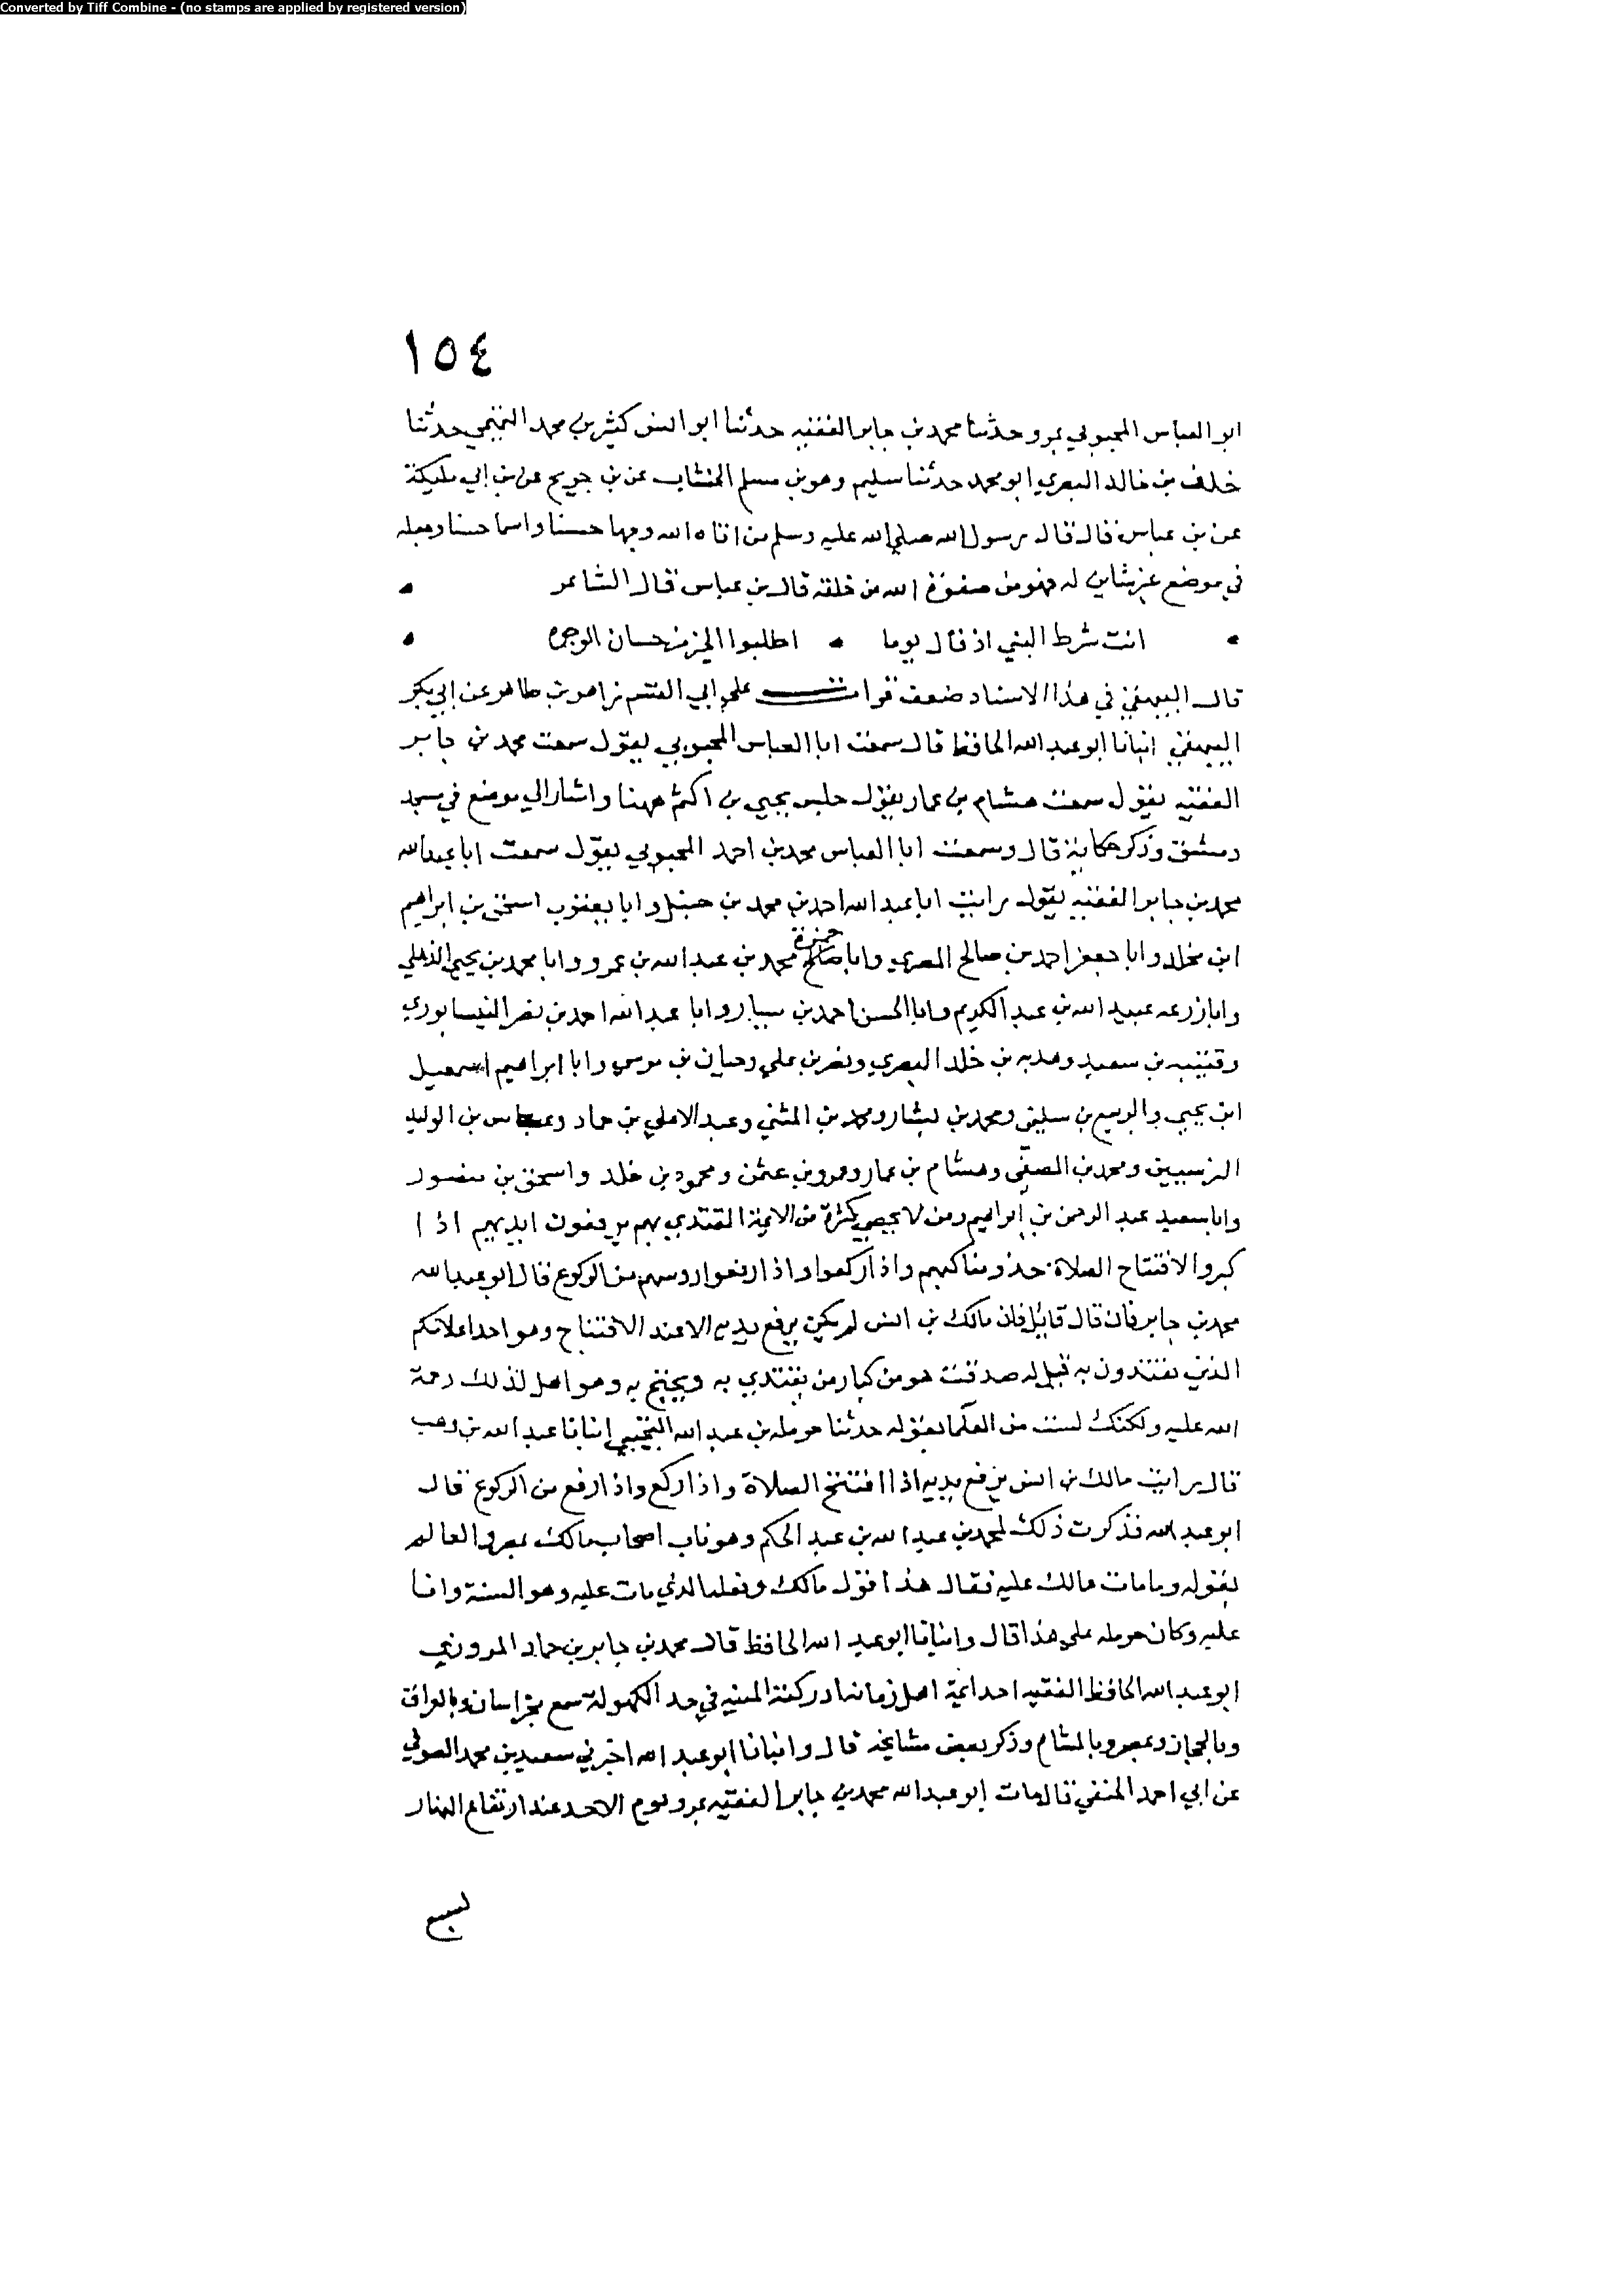 Converted by Tiff Combine - (no stamps are applied by registered version)
١٥٤
ابو العباس المحبوبي بمرو حدثنا محمد بن جابر الفقيه حدثنا ابو انس كثير بن محمد التميمي حدثنا
خلف بن خالد البصري ابو محمد حدثنا سليم وهو بن مسلم الخشاب عن بن جريج عن بن ابي مليكة
عن بن عباس قال قال رسول الله صلى الله عليه وسلم من اتاه الله وجها حسنا واسما حسنا وجعله
في موضع غير شاين له فهو من صفوة الله من خلقه قال بن عباس قال الشاعر
انت شرط النبي اذ قال يوما اطلبوا الخير من حسان الوجوه
قال البيهقي في هذا الاسناد ضعف قرات على ابي القسم زاهر بن طاهر عن ابي بكر
البيهقي انبانا ابو عبد الله الحافظ قال سمعت ابا العباس المحبوبي يقول سمعت محمد بن جابر
الفقيه يقول سمعت هشام بن عمار يقول جلس يحيي بن اكثم ههنا واشار الي موضع في مسجد
دمشق وذكر حكاية قال وسمعت ابا العباس محمد بن احمد المحبوبي يقول سمعت ابا عبد الله
محمد بن جابر الفقيه يقول رايت ابا عبد الله احمد بن محمد بن حنبل وابا يعقوب اسحق بن ابراهيم
ابن مخلد وابا جعفر احمد بن صالح المصري وابا صالح محمد بن عبد الله بن عمرو وابا محمد بن يحيى الذهلي
وابا زرعه عبيد الله بن عبد الكريم وابا الحسن احمد بن سيار وابا عبد الله احمد بن نصر النيسابوري
وقتيبه بن سعيد وهدبه بن خلد البصري ونصر بن علي وحبان بن موسى وابا ابراهيم اسمعيل
ابن يحيى والربيع بن سليمن ومحمد بن بشار ومحمد بن المثني وعبد الاعلي بن حماد وعباس بن الوليد
النرسيين ومحمد بن المصفى وهشام بن عمار وعمرو بن عثمن ومحمود بن خلد واسحق بن منصور
وابا سعيد عبد الرحمن بن ابراهيم ومن لا يحصى كثرة من الايمة المقتدي بهم يرفعون ايديهم اذا
كبروا لافتتاح الصلاة حذو مناكبهم واذا ركعوا واذا رفعوا روسهم من الركوع قال ابو عبد الله
محمد بن جابر فان قال قائل فان مالك بن انس لم يكن يرفع يديه الا عند الافتتاح وهو احد اعلامكم
الذين تقتدون به قيل له صدقت هو من كبار من يقتدي به ويحتج به وهو اهل لذلك رحمة
الله عليه ولكنك لست من العلما بقوله حدثنا حرمله بن عبد الله التجيبي انبانا عبد الله بن وهب
قال رايت مالك بن انس يرفع يديه اذا افتتح الصلاة واذا ركع واذا رفع من الركوع قال
ابو عبد الله فذكرت ذلك لمحمد بن عبد الله بن عبد الحكم وهو ناب اصحاب مالك بمصر والعالم
بقوله وما مات مالك عليه فقال هذا قول مالك وفعله الذي مات عليه وهو السنة وانا
عليه وكان حرمله على هذا قال وانبانا ابو عبد الله الحافظ قال محمد بن جابر بن حماد المروزي
ابو عبد الله الحافظ الفقيه احد ايمة اهل زمانه ادركته المنيه في حد الكهولة سمع بخراسان وبالعراق
وبالحجاز وبمصر وبالشام وذكر بعض مشايخه قال وانبانا ابو عبد الله اخبرني سعيد بن محمد الصوفي
عن ابي احمد الحنفي قال مات ابو عبد الله محمد بن جابر الفقيه بمرو يوم الاحد عند ارتفاع النهار